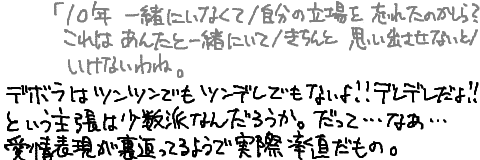 「10年 一緒にいなくて/自分の立場を 忘れたのかしら?
これは あんたと一緒にいて/きちんと 思い出させないと/
いけないわね。
デボラはツンツンでもツンデレでもないよ!!デレデレだよ!!
という主張は少数派なんだろうか。だって…なあ…
愛情表現が裏返ってるようで実際率直だもの。